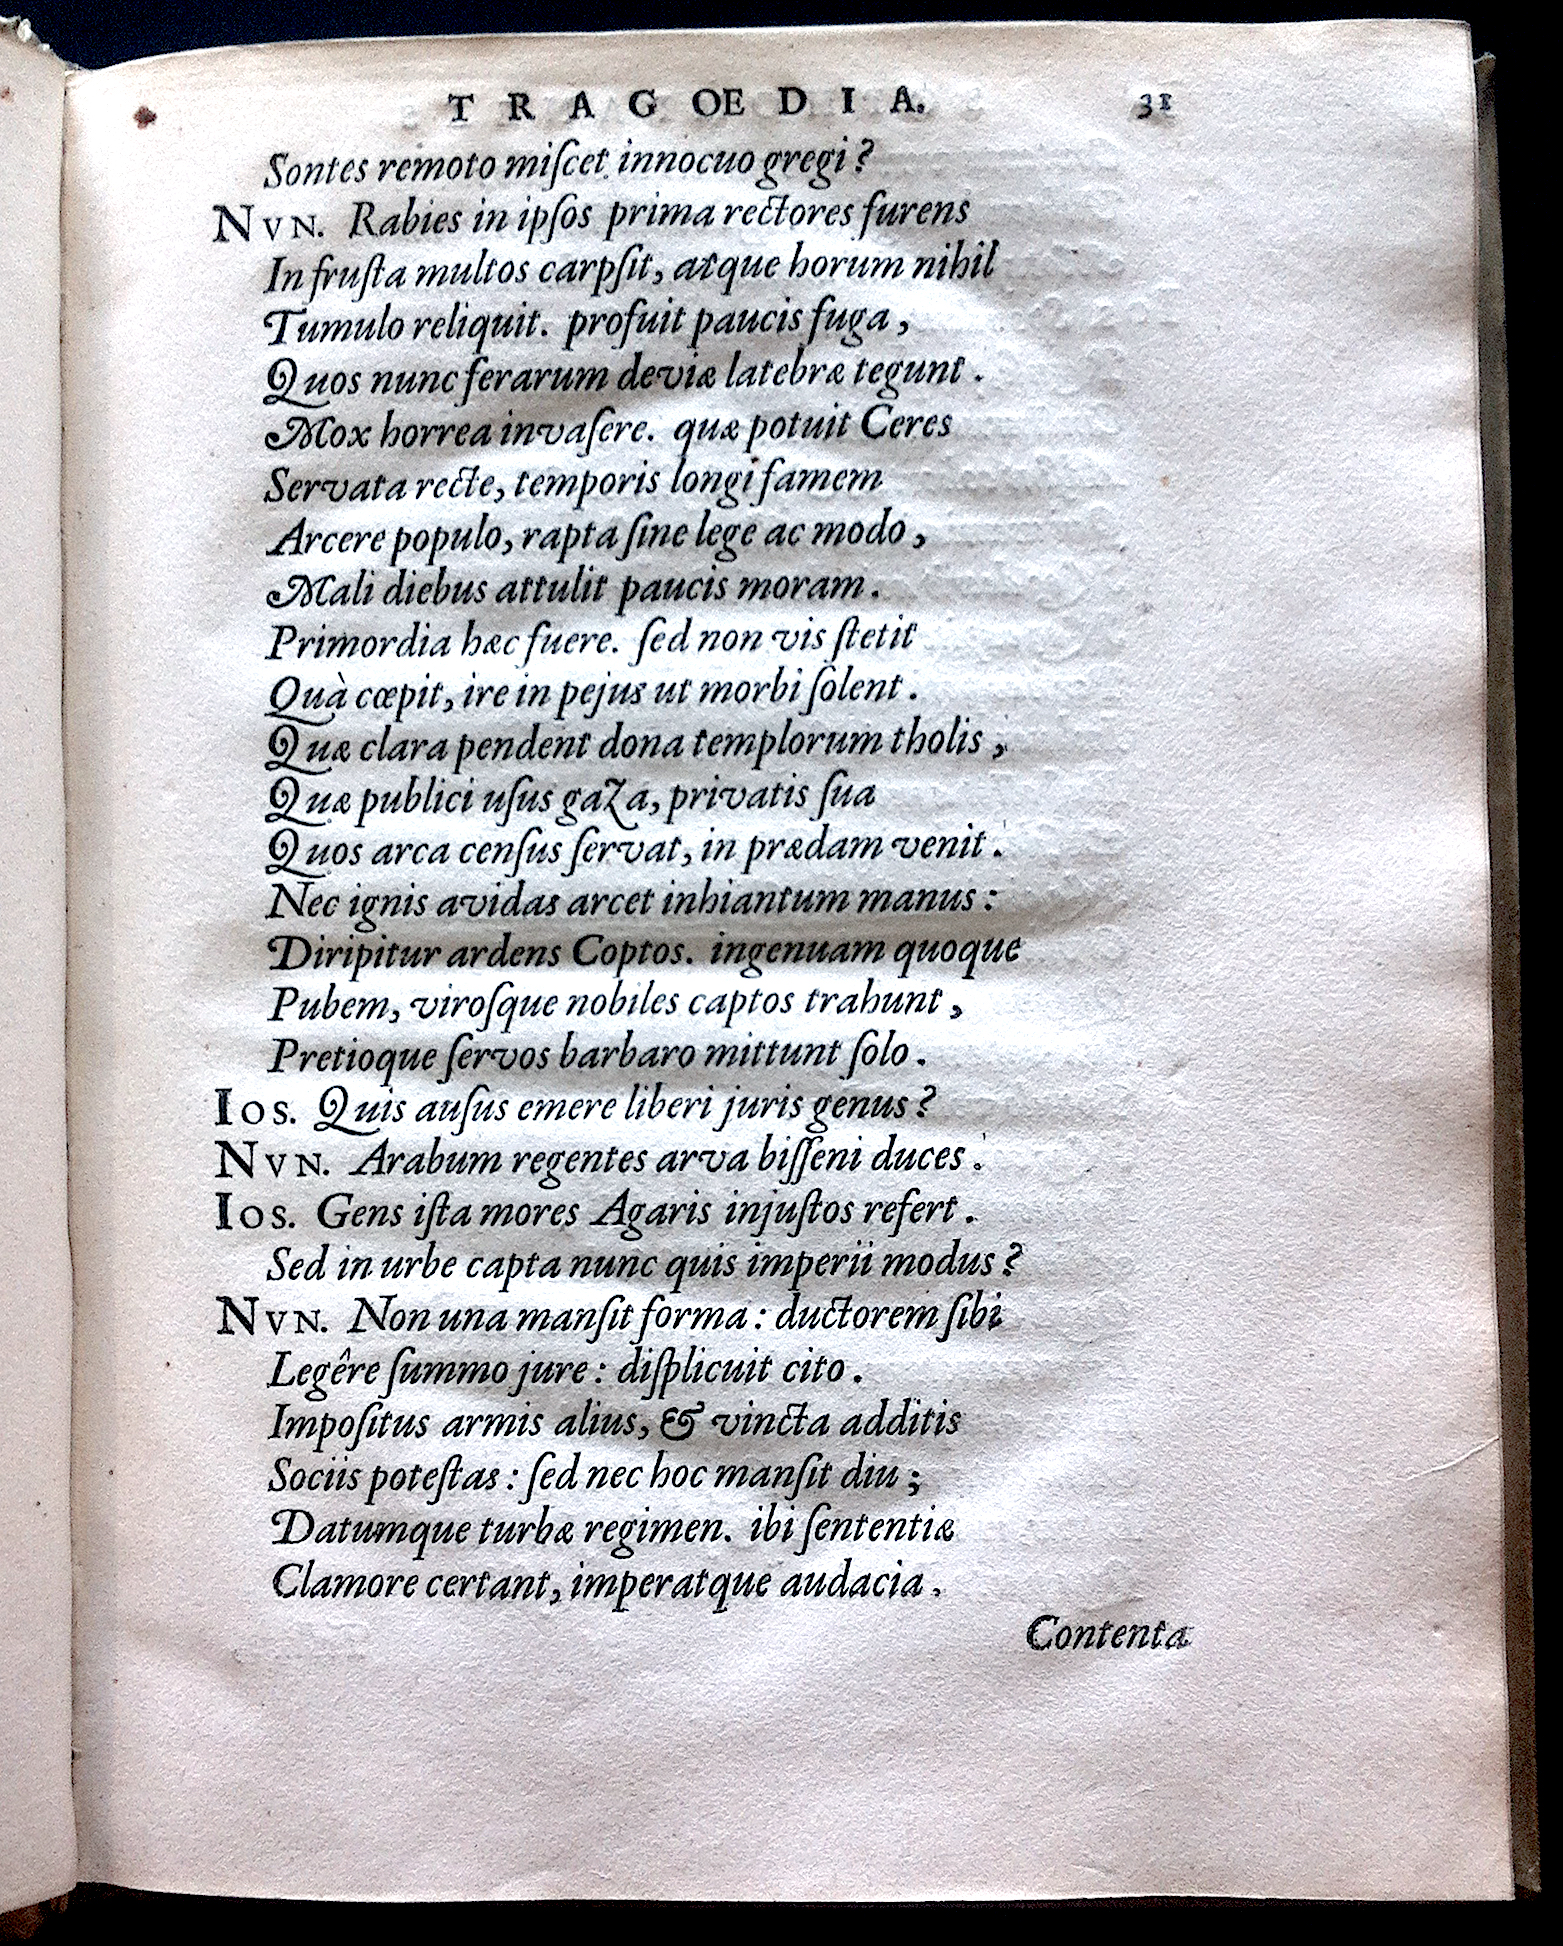 TRAGOEDIA. 31
Sontes remoto miſcet innocuo gregi?
NVN. Rabies in ipſos prima rectores furens
In fruſta multos carpſit, atque horum nihil
Tumulo reliquit. profuit paucis fuga,
Quos nunc ferarum deviæ latebræ tegunt.
Mox horrea invaſere. quæ potuit Ceres
Servata recte, temporis longi famem
Arcere populo, rapta ſine lege ac modo,
Mali diebus attulit paucis moram.
Primordia hæc fuere. ſed non vis ſtetit
Quà cœpit, ire in pejus ut morbi ſolent.
Quæ clara pendent dona templorum tholis,
Quæ publici uſus gaza, privatis ſua
Quos arca cenſus ſervat, in prædam venit.
Nec ignis avidas arcet inhiantum manus:
Diripitur ardens Coptos. ingenuam quoque
Pubem, viroſque nobiles captos trahunt,
Pretioque ſervos barbaro mittunt ſolo.
IOS. Quis auſus emere liberi juris genus?
NVN. Arabum regentes arva biſſeni duces.
IOS. Gens iſta mores Agaris injuſtos refert.
Sed in urbe capta nunc quis imperii modus?
NVN. Non una manſit forma: ductorem ſibi
Legêre ſummo jure: diſplicuit cito.
Impoſitus armis alius, & vincta additis
Sociis poteſtas: ſed nec hoc manſit diu;
Datumque turbæ regimen. ibi ſententiæ
Clamore certant, imperatque audacia.
Contenta